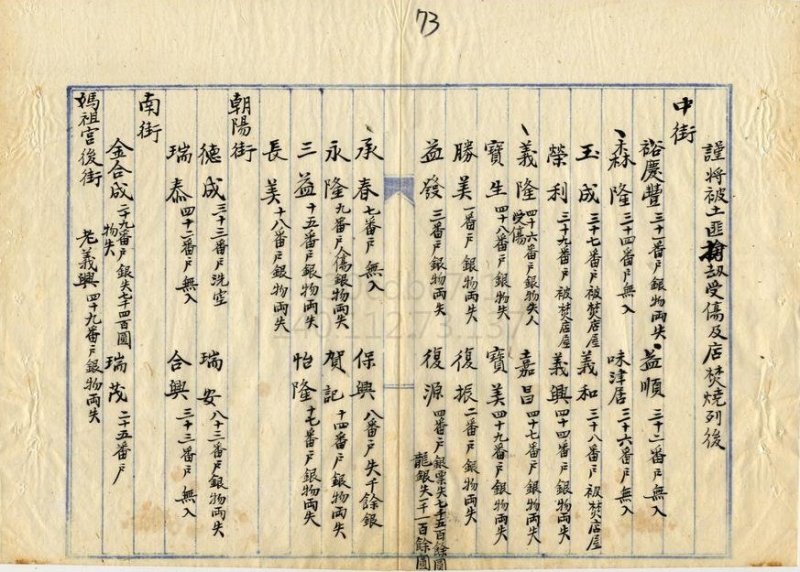 73
謹將被土匪搶刼受傷及店焚燒列後
中街
裕慶豐 三十一番戶 銀物両失 益順 三十二番戶 無入
森隆 三十四番戶 無入 味津居 三十六番戶 無入
玉成 三十七番戶 被焚店屋 義和 三十八番戶 被焚店屋
榮利 三十九番戶 被焚店屋 義興 四十四番戶 銀物両失
義隆 四十六番戶 銀物失人受傷 嘉昌 四十七番戶 銀物両失
寶生 四十八番戶 銀物失 寶美 四十九番戶 銀物両失
勝美 一番戶 銀物両失 復振 二番戶 銀物両失
益發 三番戶 銀物両失 復源 四番戶 銀票失七千五百餘圓 龍銀失一千一百餘圓
承春 七番戶 無入 保興 八番戶 失千餘銀
永隆 九番戶 人傷銀物両失 賀記 十四番戶 銀物両失
三益 十五番戶 銀物両失 怡隆 十七番戶 銀物両失
長美 十八番戶 銀物両失
朝陽街
德成 三十三番戶 洗空 瑞安 八十三番戶 銀物両失
瑞泰 四十二番戶 無入 合興 三十三番戶 無入
南街
金合成 二十九番戶 銀失七千四百圓 物失 瑞茂 二十五番戶
媽祖宮後街 老義興 四十九番戶 銀物両失